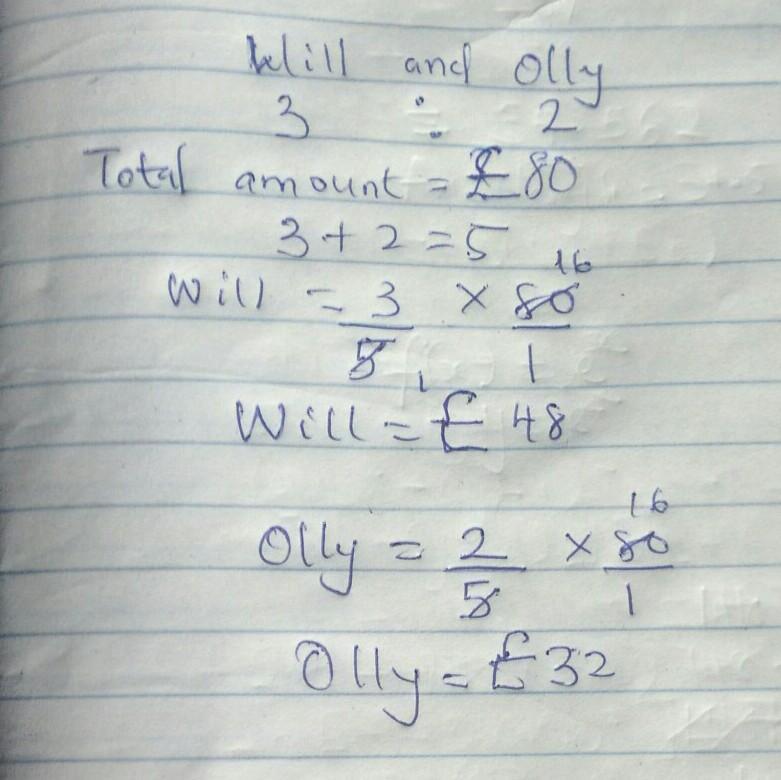 Will and Olly
3 : 2
Total amount = £80
3 + 2 = 5
16
Will = 3 × 80
5 1 1
Will = £ 48
16
Olly = 2 × 80
5 1
Olly = £32